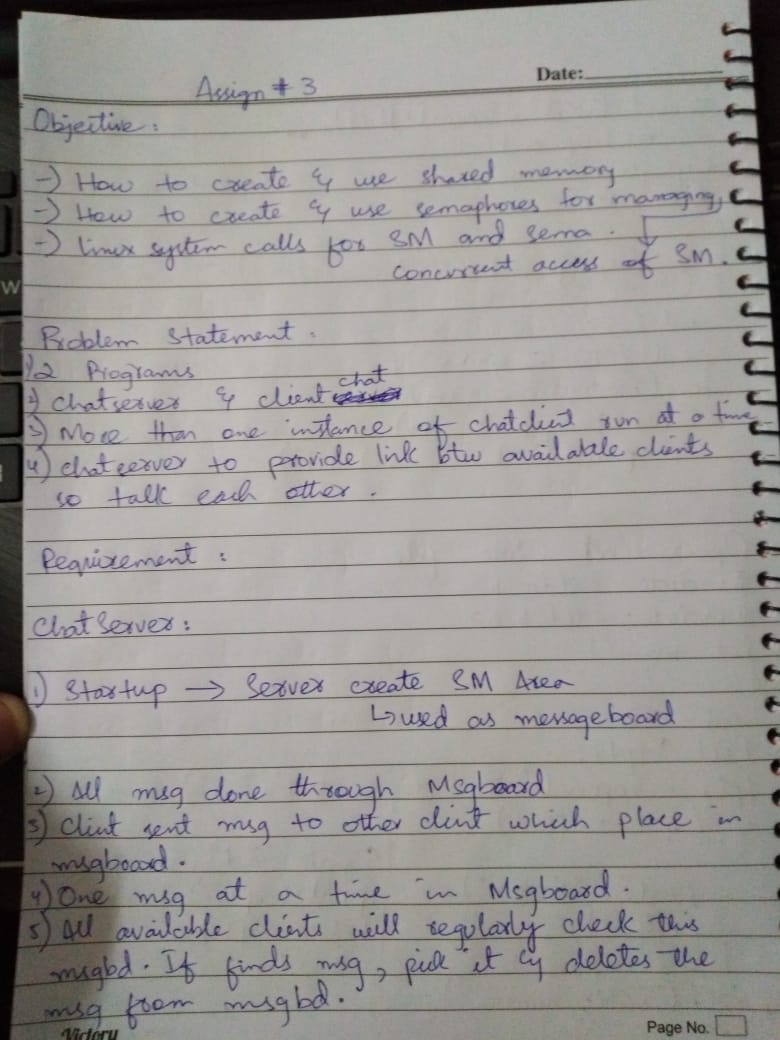 Date:
Assign # 3
Objective:
-) How to create & use shared memory
-) How to create & use semaphores for managing
-) linux system calls for SM and sema. ↓
concurrent access of SM.
Problem Statement.
1) 2 Programs
2) Chatserver & client chat
3) More than one instance of chatclient run at a time
4) chatserver to provide link btw available clients
so talk each other.
Requirement :
Chat Server:
1) Startup → Server create SM Area
↳ used as messageboard
2) All msg done through Msgboard
3) Client sent msg to other client which place in
msgboard.
4) One msg at a time in Msgboard.
5) All available clients will regularly check this
msgbd. If finds msg, pick it & deletes the
msg from msgbd.
Victory
Page No.
W